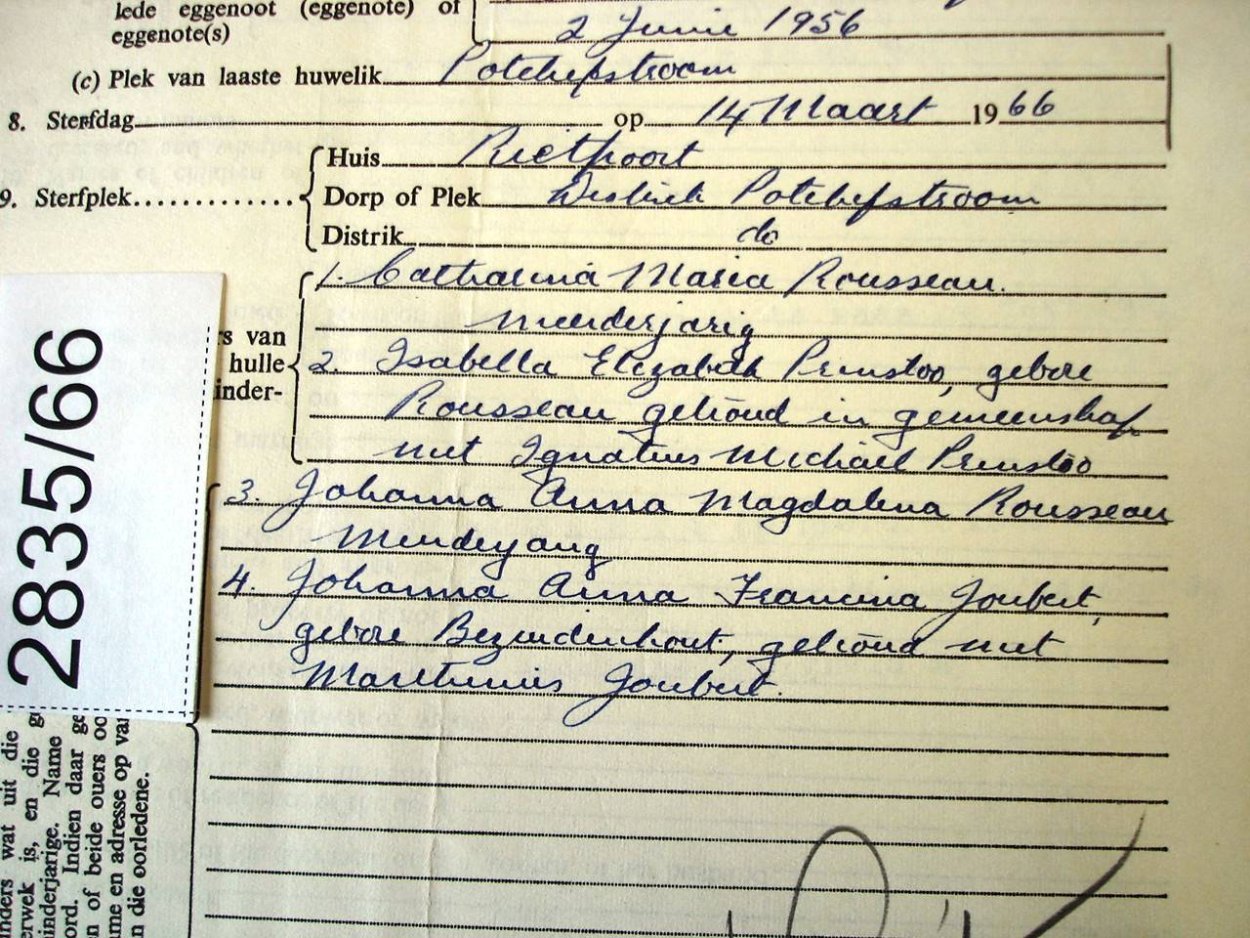 lede eggenoot (eggenote) of
eggenote(s)
2 Junie 1956
(c) Plek van laaste huwelik Potchefstroom
8. Sterfdag op 14 Maart 1966
9. Sterfplek
Huis Rietpoort
Dorp of Plek Distrik Potchefstroom
Distrik do
1. Catharina Maria Rousseau.
meerderjarig
rs van
hulle
inder-
2. Isabella Elizabeth Prinsloo, gebore
Rousseau getroud in gemeenskap
met Ignatius Michael Prinsloo
3. Johanna Anna Magdalena Rousseau
Meerderjarig
4. Johanna Anna Francina Joubert,
gebore Bezuidenhout, getroud met
Marthinus Joubert.
2835/66
inders wat uit die
erwek is, en die
inderjarige. Name
ord. Indien daar
n of beide ouers
me en adresse op
n die oorledene.